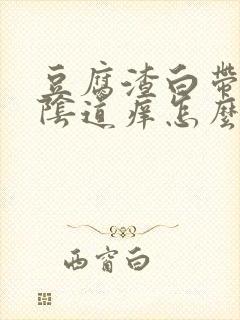 豆腐渣白带
陰道痒怎麼
西窗白